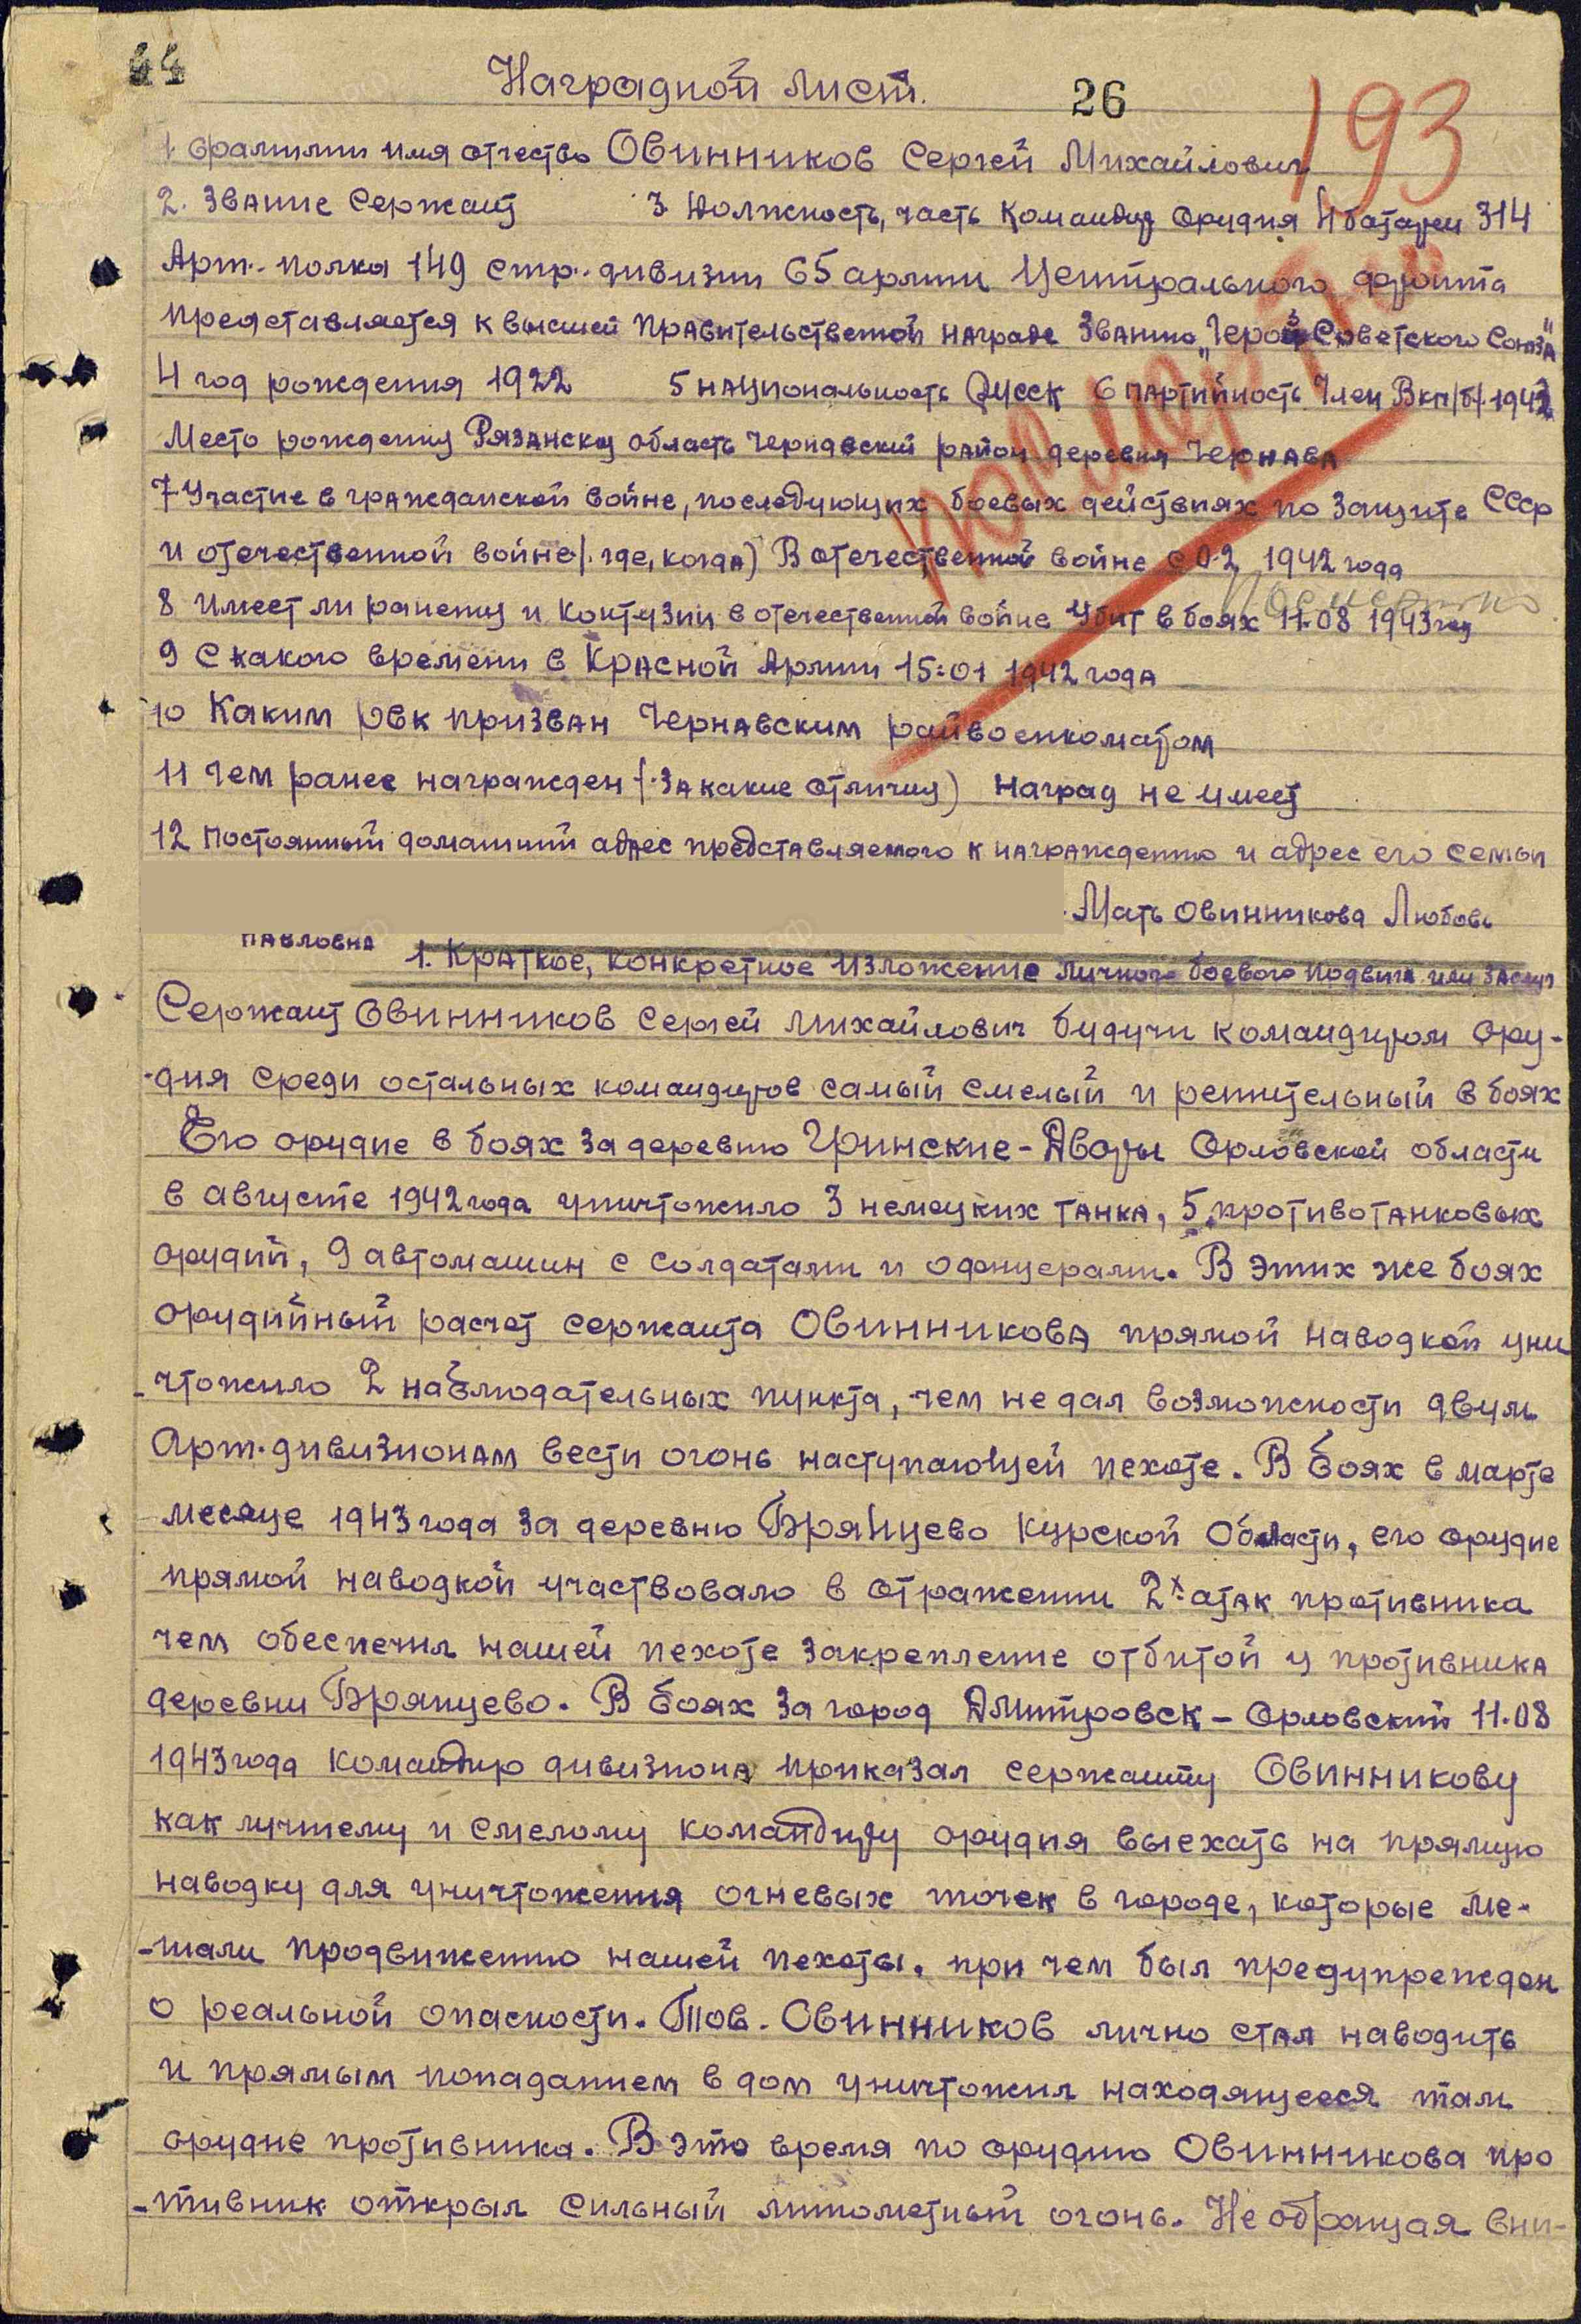 44
Наградной лист.
26
193
1 Фамилии имя отчество Овинников Сергей Михайлович
2. Звание Сержант 3. Должность, часть Командир орудия 4 батареи 314
Арт. полка 149 стр. дивизии 65 армии Центрального фронта
представляется к высшей правительственной награде званию „Героя Советского Союза"
4 год рождения 1922 5 национальность Русск 6 партийность Член Вкп/б/. 1943
Место рождения Рязанская область Чернавский район деревня Чернава
7 Участие в гражданской войне, последующих боевых действиях по защите СССР
и отечественной войне/. где, когда) В отечественной войне с 02 1942 года
посмертно
Посмертно
8 Имеет ли ранения и контузии в отечественной войне Убит в боях 11.08 1943 год
9 С какого времени в Красной Армии 15:01 1942 года
10 Каким рвк призван Чернавским райвоенкоматом
11 Чем ранее награжден (. за какие отличия) наград не имеет
12 Постоянный домашний адрес представляемого к награждению и адрес его семьи
Мать Овинникова Любовь
Павловна
1. Краткое, конкретное изложение личного боевого подвига или заслуг
Сержант Овинников Сергей Михайлович будучи командиром ору-
-дия среди остальных командиров самый смелый и решительный в боях
Его орудие в боях за деревню Гринские-Дворы Орловской области
в августе 1942 года уничтожило 3 немецких танка, 5 противотанковых
орудий, 9 автомашин с солдатами и офицерами. В этих же боях
орудийный расчет сержанта Овинникова прямой наводкой уни
-чтожило 2 наблюдательных пункта, чем не дал возможности двум
Арт. дивизионам вести огонь наступающей пехоте. В боях в марте
месяце 1943 года за деревню Брянцево Курской Области, его орудие
прямой наводкой участвовало в отражении 2х атак противника
чем обеспечил нашей пехоте закрепление отбитой у противника
деревни Брянцево. В боях за город Дмитровск-Орловский 11.08
1943 года командир дивизиона приказал сержанту Овинникову
как лучшему и смелому командиру орудия выехать на прямую
наводку для уничтожения огневых точек в городе, которые ме-
-шали продвижению нашей пехоты. при чем был предупрежден
о реальной опасности. Тов. Овинников лично стал наводить
и прямым попаданием в дом уничтожил находящееся там
орудие противника. В это время по орудию Овинникова про
-тивник открыл сильный минометный огонь. Не обращая вни-